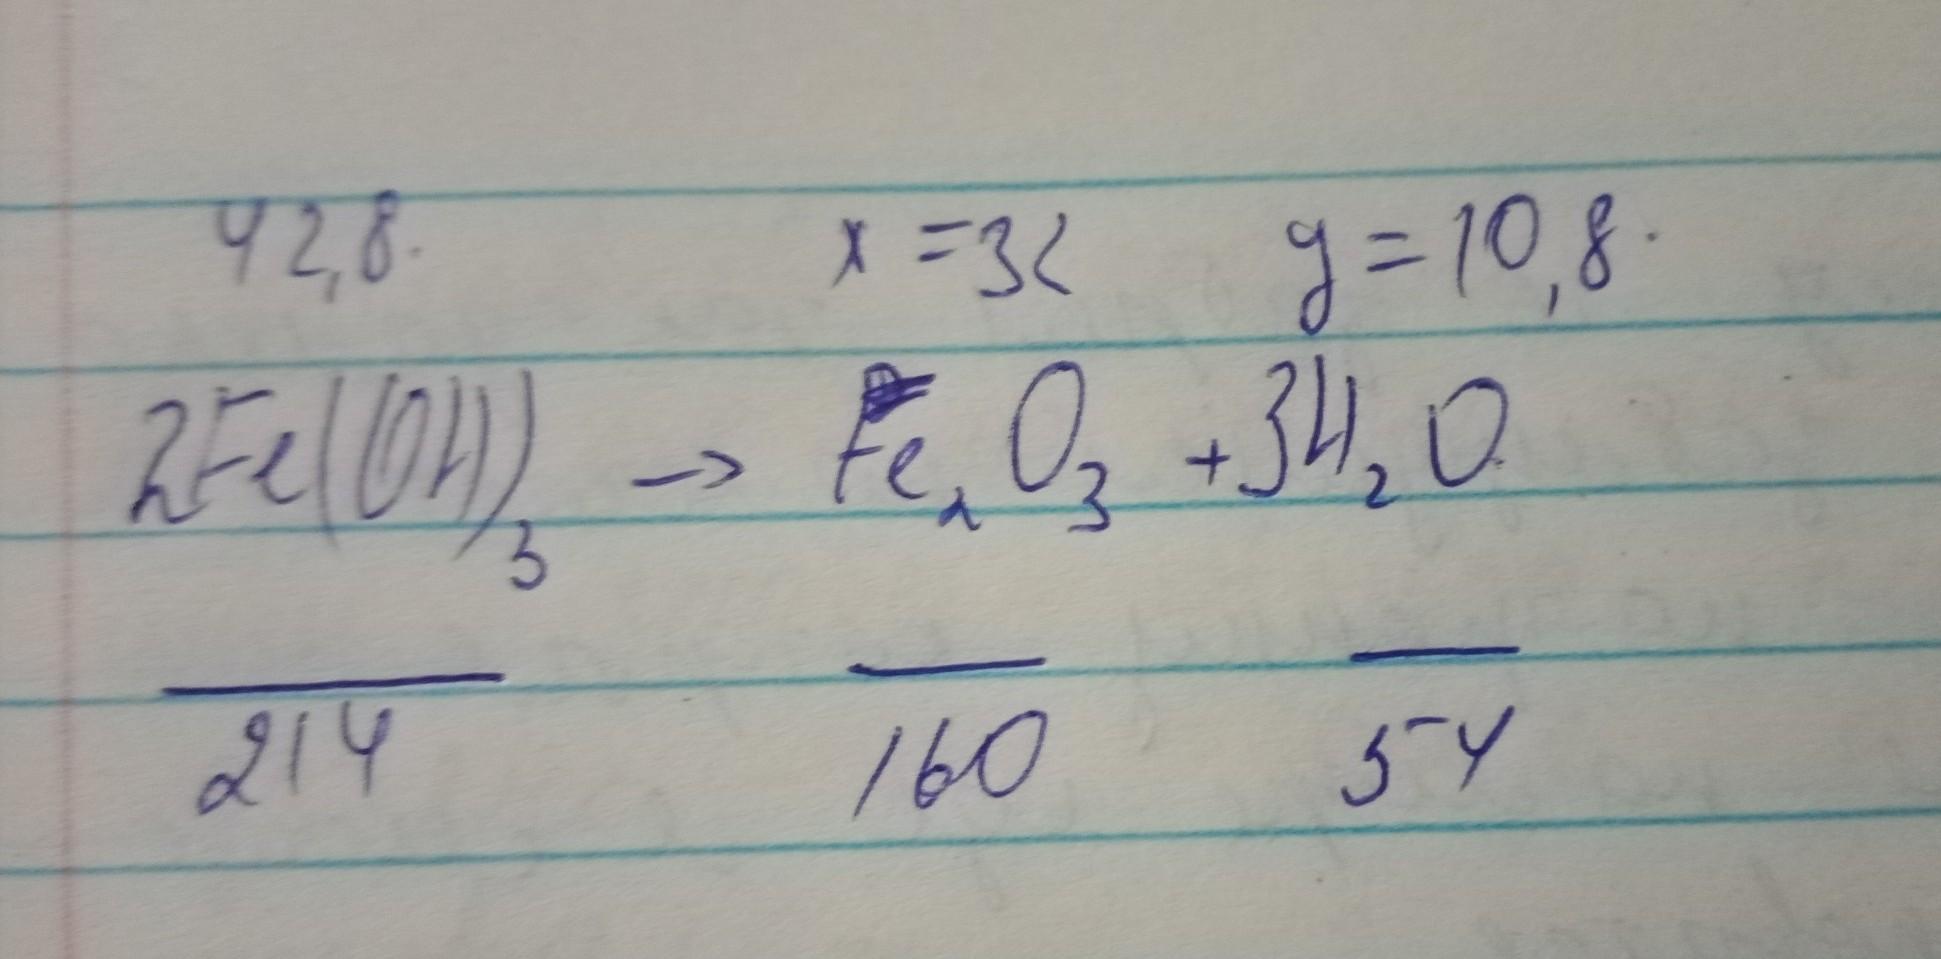 42,8. x = 32 y = 10,8.
2Fe(OH)₃ → Fe₂O₃ + 3H₂O
214 160 54